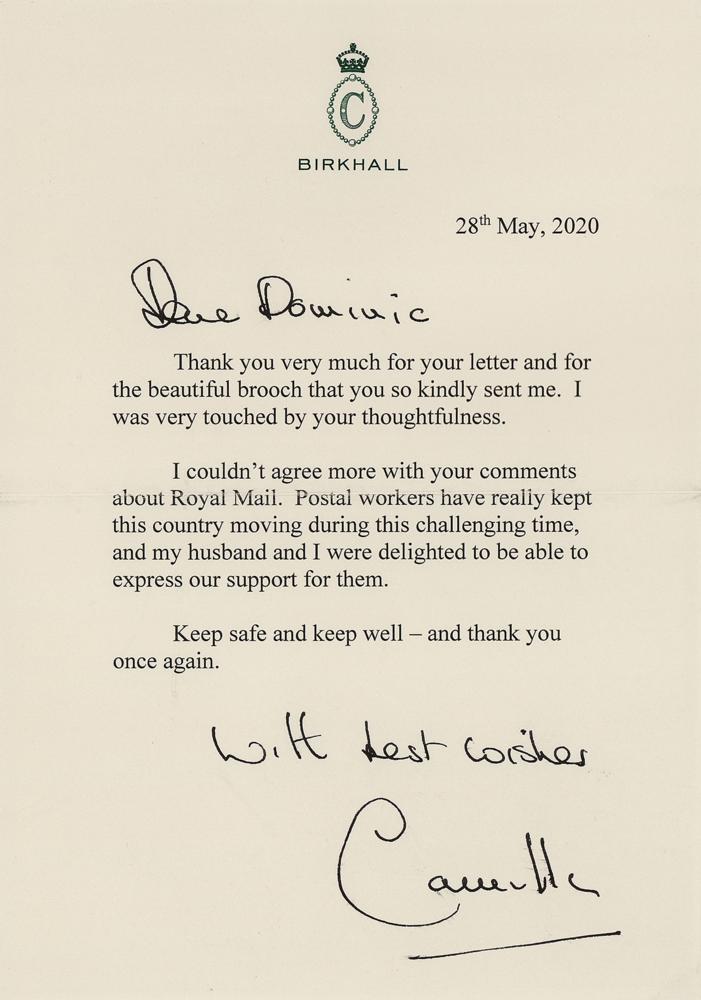 C
BIRKHALL
28th May, 2020
Dear Dominic
Thank you very much for your letter and for
the beautiful brooch that you so kindly sent me. I
was very touched by your thoughtfulness.
I couldn't agree more with your comments
about Royal Mail. Postal workers have really kept
this country moving during this challenging time,
and my husband and I were delighted to be able to
express our support for them.
Keep safe and keep well – and thank you
once again.
With best wishes
Camilla